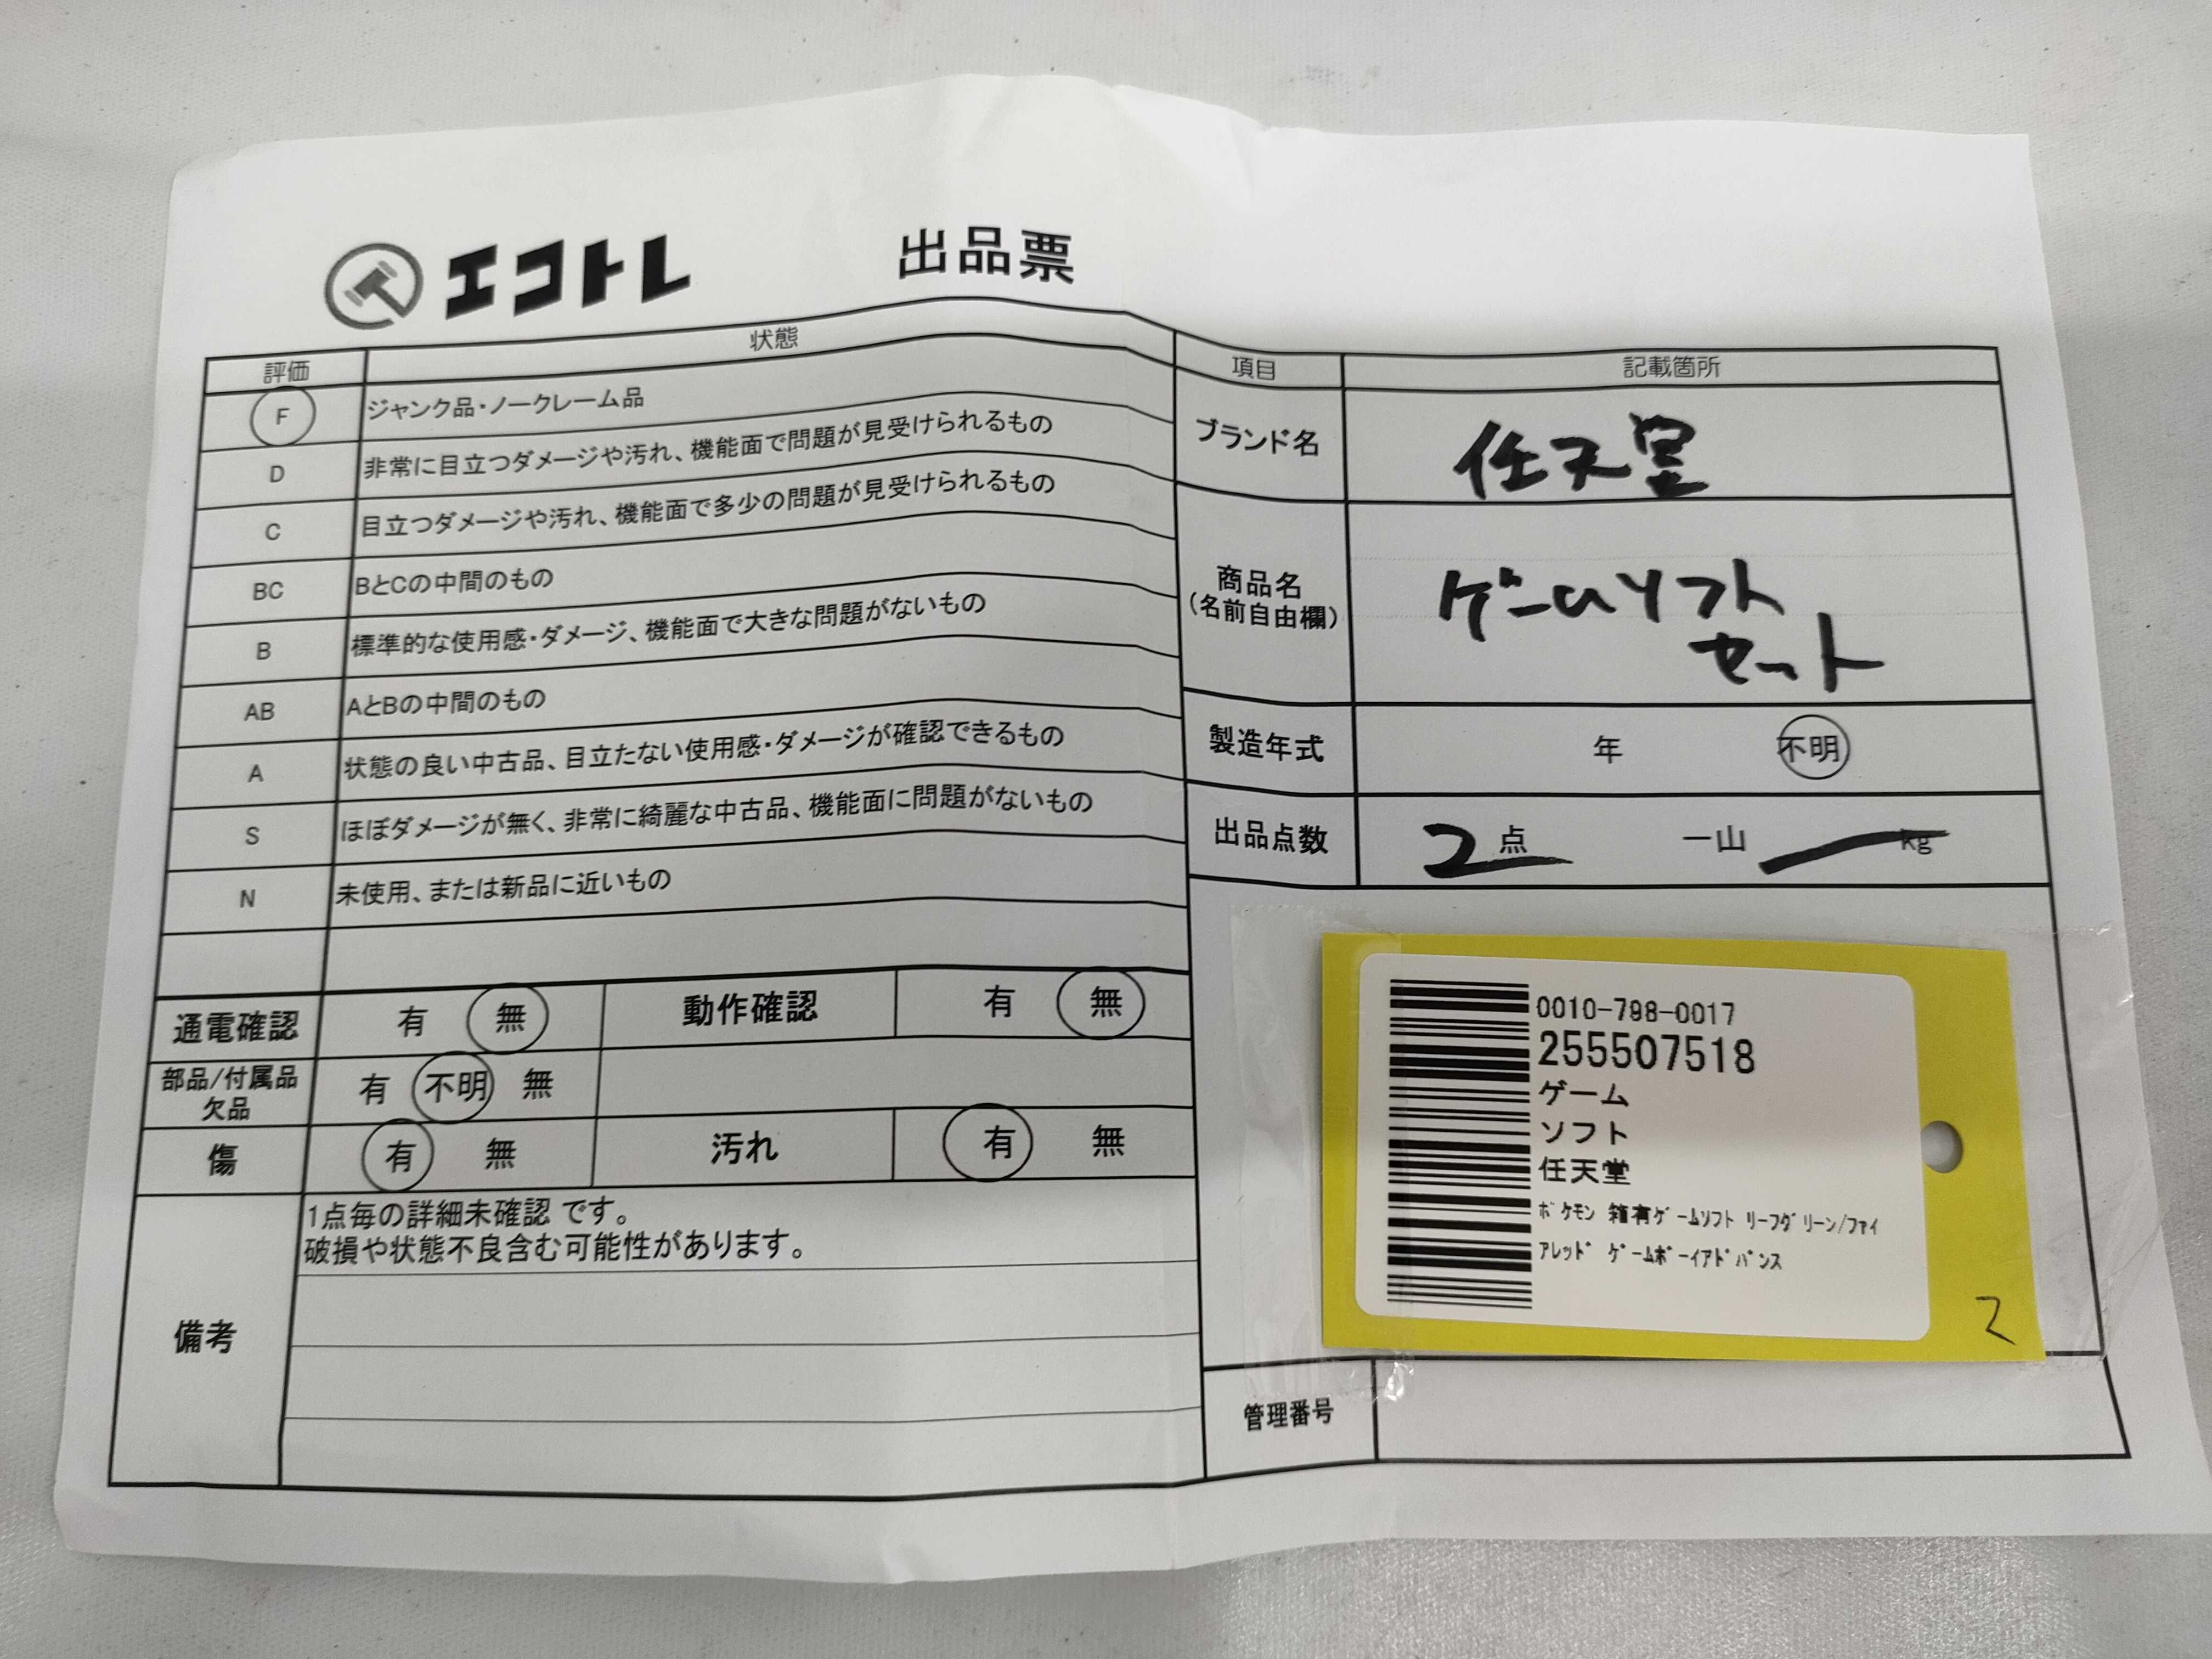 エコトレ
出品票
評価 状態
F ジャンク品・ノークレーム品
D 非常に目立つダメージや汚れ、機能面で問題が見受けられるもの
C 目立つダメージや汚れ、機能面で多少の問題が見受けられるもの
BC BとCの中間のもの
B 標準的な使用感・ダメージ、機能面で大きな問題がないもの
AB AとBの中間のもの
A 状態の良い中古品、目立たない使用感・ダメージが確認できるもの
S ほぼダメージが無く、非常に綺麗な中古品、機能面に問題がないもの
N 未使用、または新品に近いもの
通電確認 有 無 動作確認 有 無
部品/付属品
欠品
有 不明 無
傷 有 無 汚れ 有 無
備考
1点毎の詳細未確認 です。
破損や状態不良含む可能性があります。
項目 記載箇所
ブランド名 任天堂
商品名
(名前自由欄)
ゲームソフト
セット
製造年式 年 不明
出品点数 2 点 一山 kg
0010-798-0017
255507518
ゲーム
ソフト
任天堂
ポケモン 箱有ゲームソフト リーフグリーン/ファイ
アレッド ゲームボーイアドバンス
2
管理番号